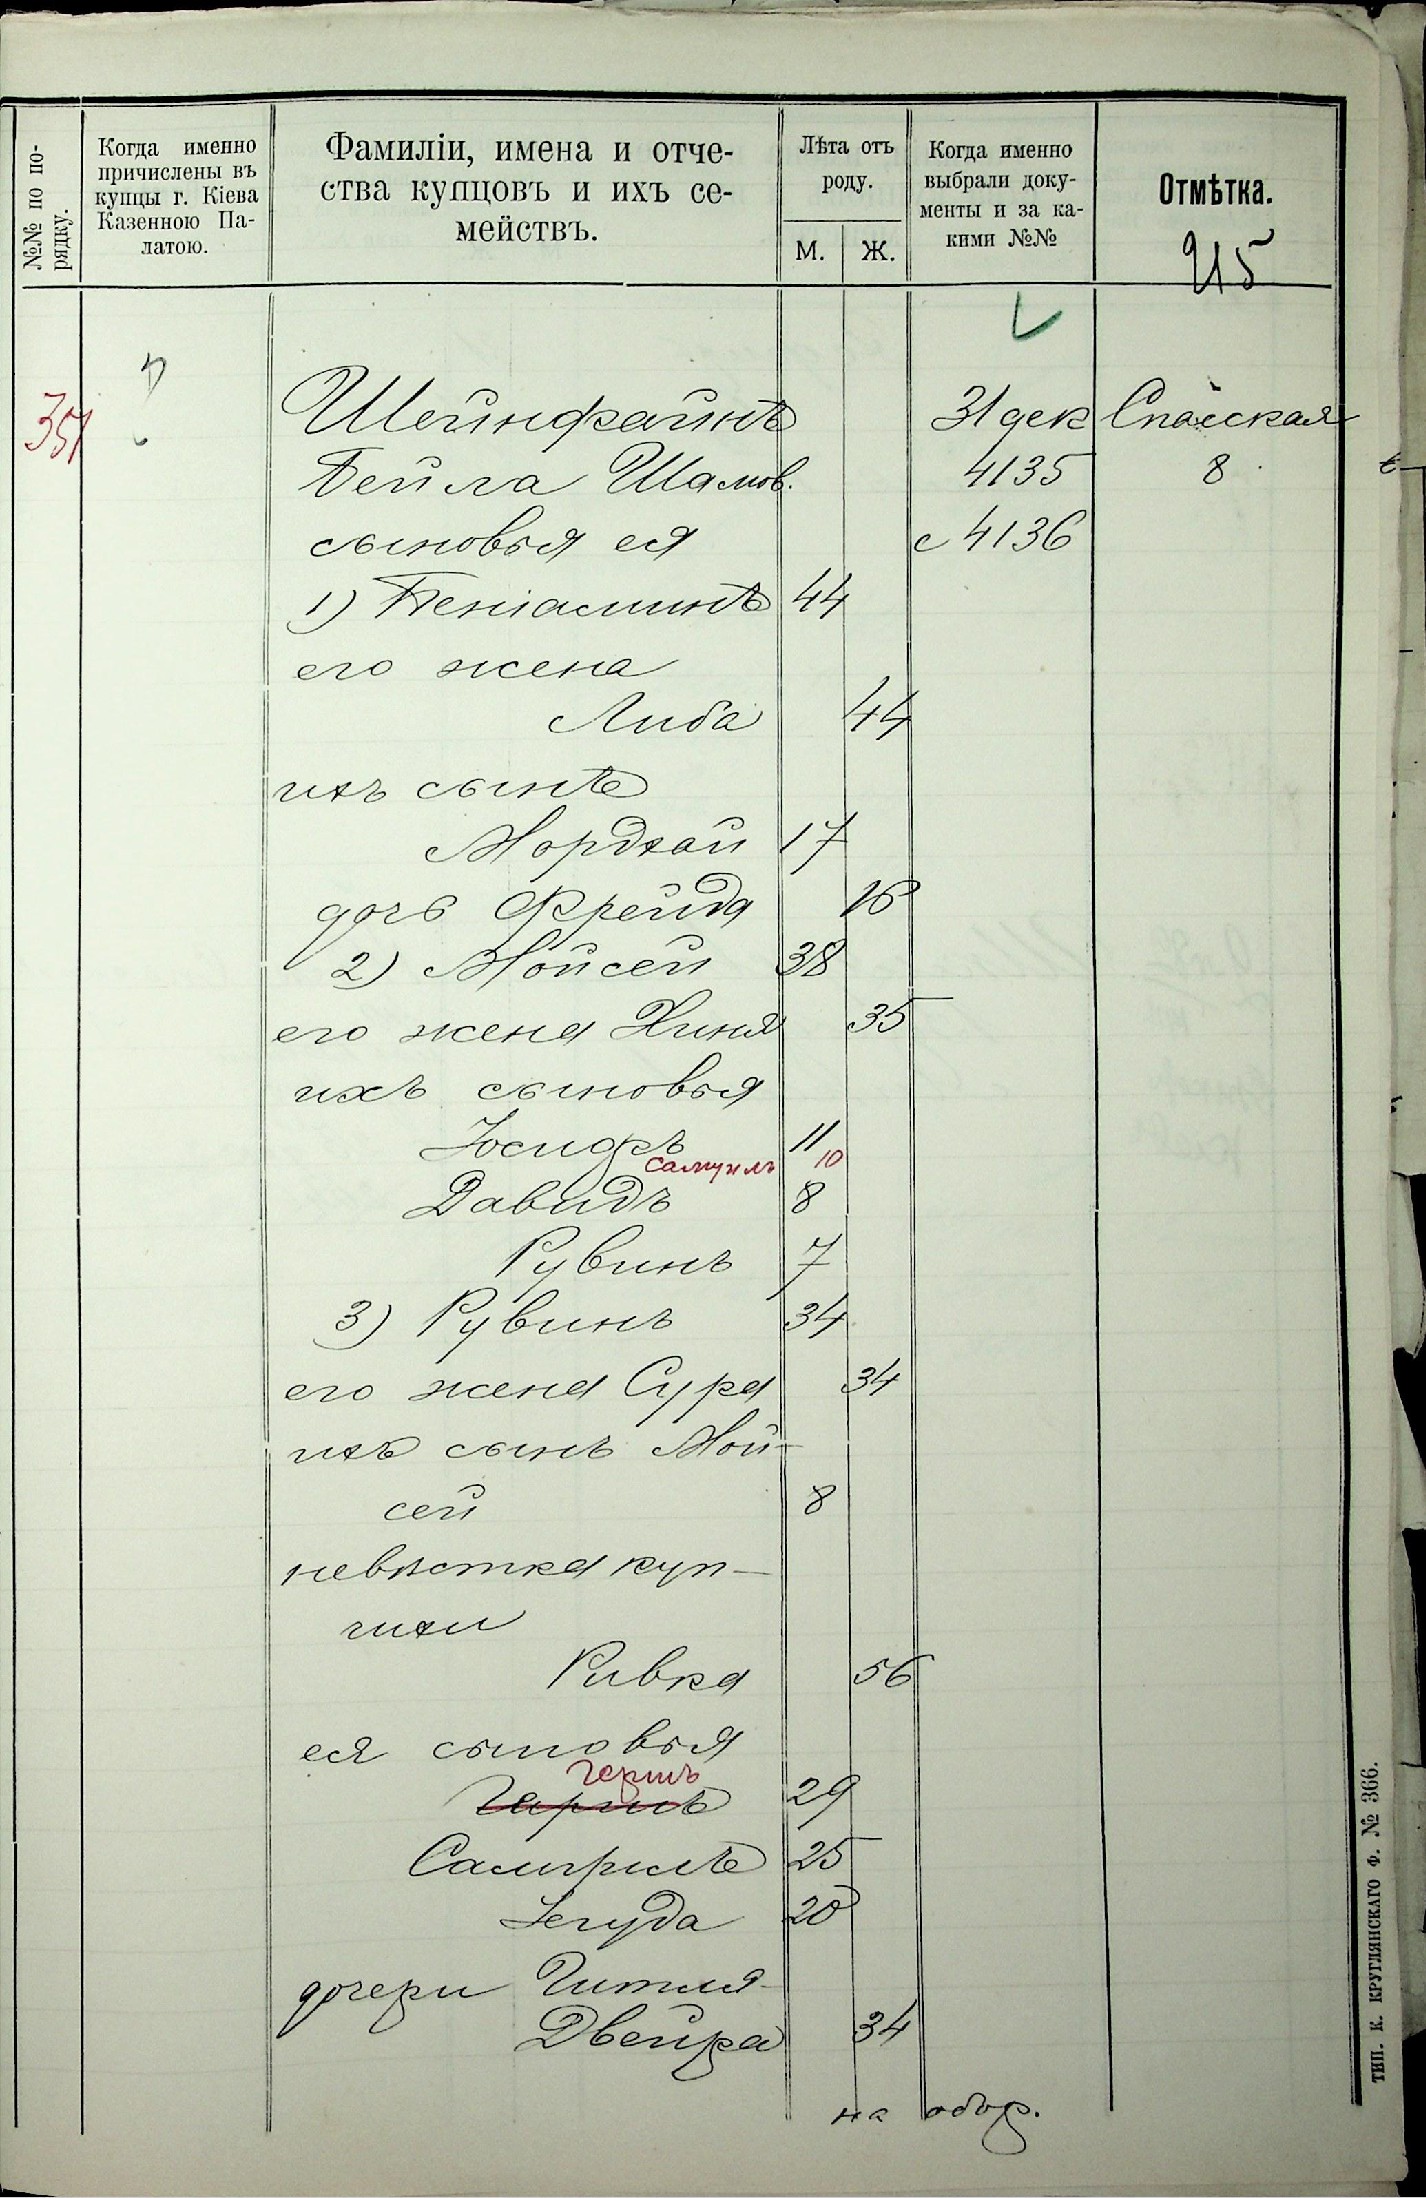 №№ по по-
рядку.
Когда именно
причислены въ
купцы г. Кіева
Казенною Па-
латою.
Фамиліи, имена и отче-
ства купцовъ и ихъ се-
мействъ.
Лѣта отъ
роду.
М. Ж.
Когда именно
выбрали доку-
менты и за ка-
кими №№
Отмѣтка.
215
351 ? Шейнфайнъ 31 дек Спасская
Бейла Шамов. 4135 8
сыновья ея с 4136
1) Беніаминъ 44
его жена
Либа 44
ихъ сынъ
Мордхай 17
дочь Фрейда 16
2) Мойсей 38
его жена Хиня 35
ихъ сыновья
Іосифъ 11
Самуилъ 10
Давидъ 8
Рувинъ 7
3) Рувинъ 34
его жена Сура 34
ихъ сынъ Мой-
сей 8
невѣстка куп-
чихи
Ривка 56
ея сыновья
Гершъ
29
25
Іегуда 20
дочери Гитля-
Двейра 34
на обор.
ТИП. К. КРУГЛЯНСКАГО Ф. № 366.